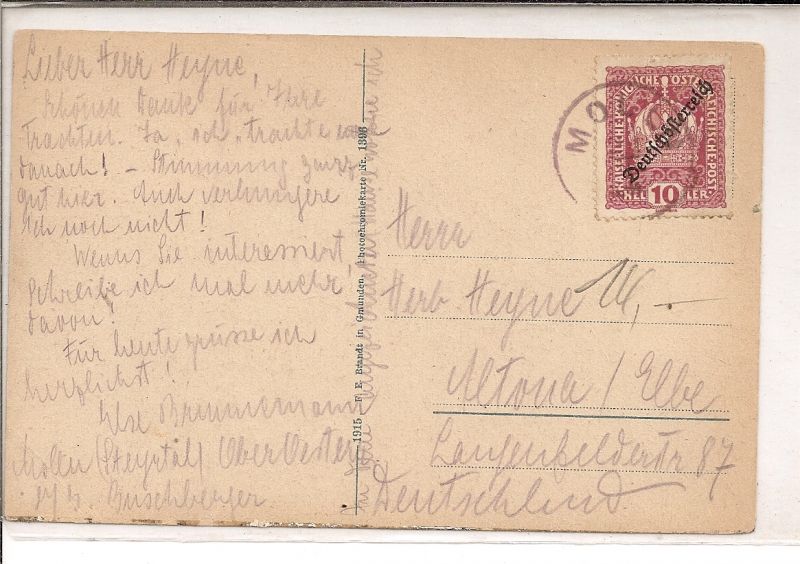 Lieber Herr Heyne,
schönen Dank für Ihre
Trachten. Ja, ich "trachte"
danach! – Stimmung
gut hier. Auch verhungere
ich noch nicht!
Wenns Sie interessiert,
schreibe ich mal mehr
davon!
Für heute grüsse ich
herzlichst!
Ilse Brunnemann
Molln (Steyrtal) OberOester
Buschberger
1915 F. E. Brandt in Gmunden. Photochromiekarte Nr. 1398
MO
KAISERLICHE KÖNIGLICHE ÖSTERREICHISCHE POST
Deutschösterreich
10
HELLER
Herrn
Herb Heyne
Altona / Elbe
Langenfelderstr 87
Deutschland